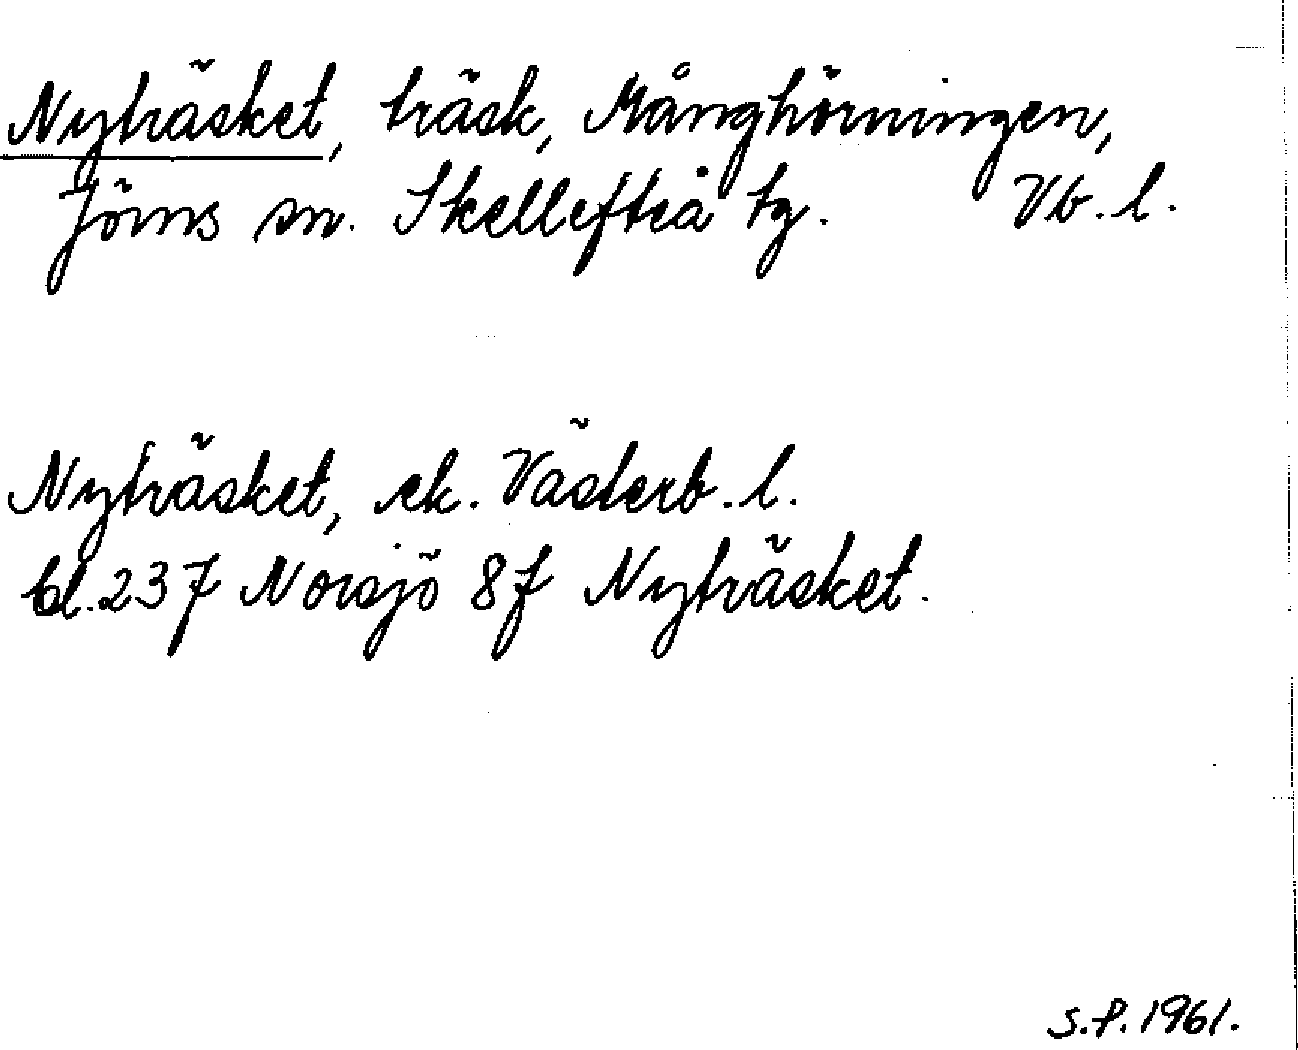 Nyträsket, träsk, Månghörningen,
Jörns sn. Skellefteå tg. Vb. l.
Nyträsket, ek. Västerb. l.
bl. 237 Norsjö 8f Nyträsket.
S.P. 1961.